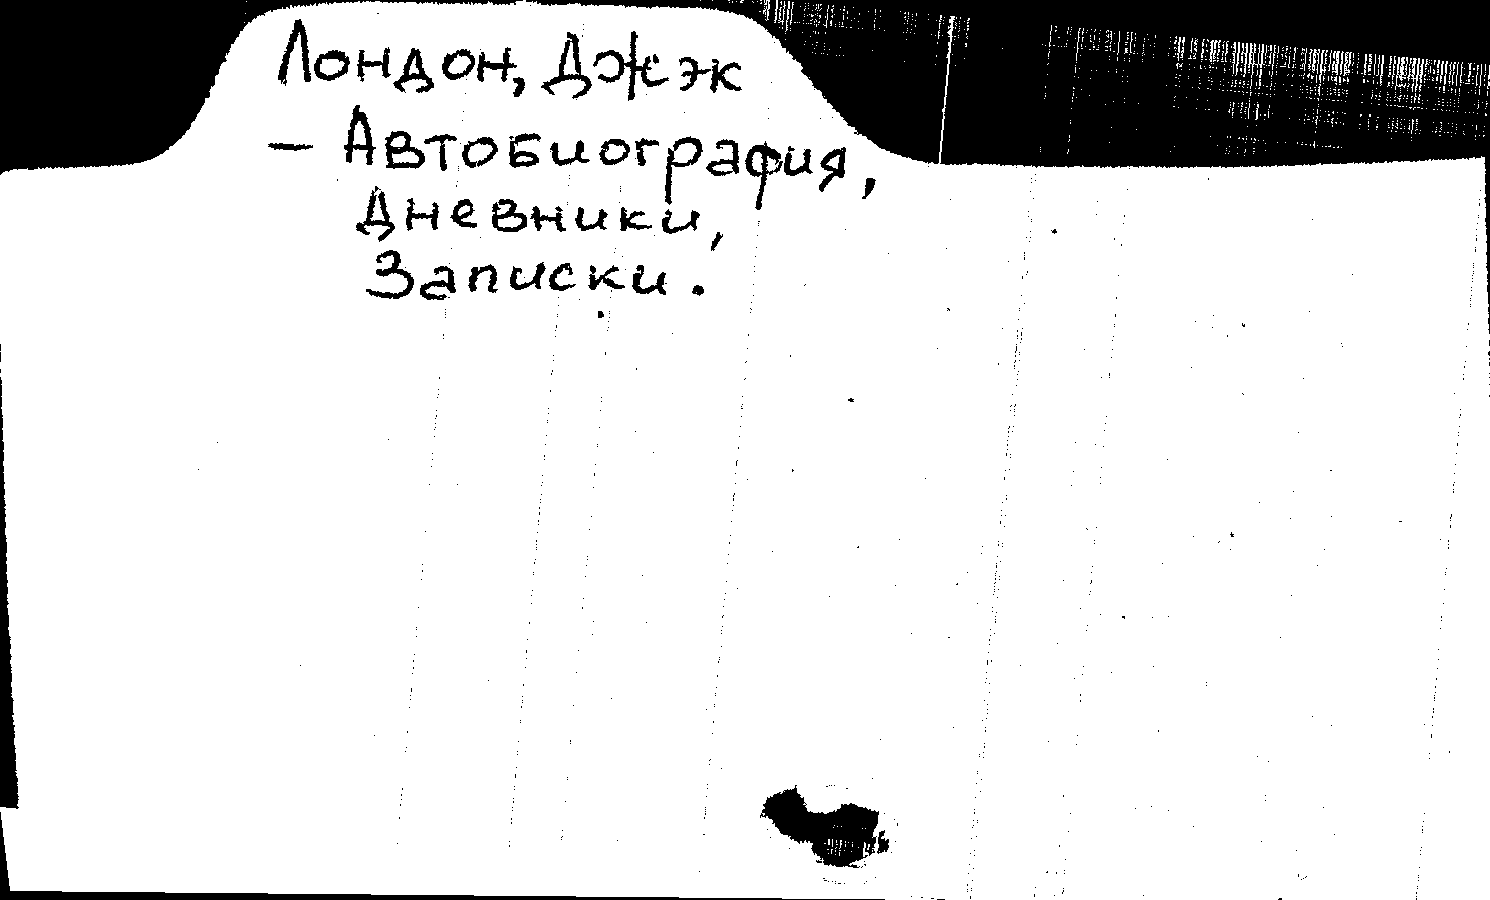 Лондон, Джэк
– Автобиография,
Дневники,
Записки.